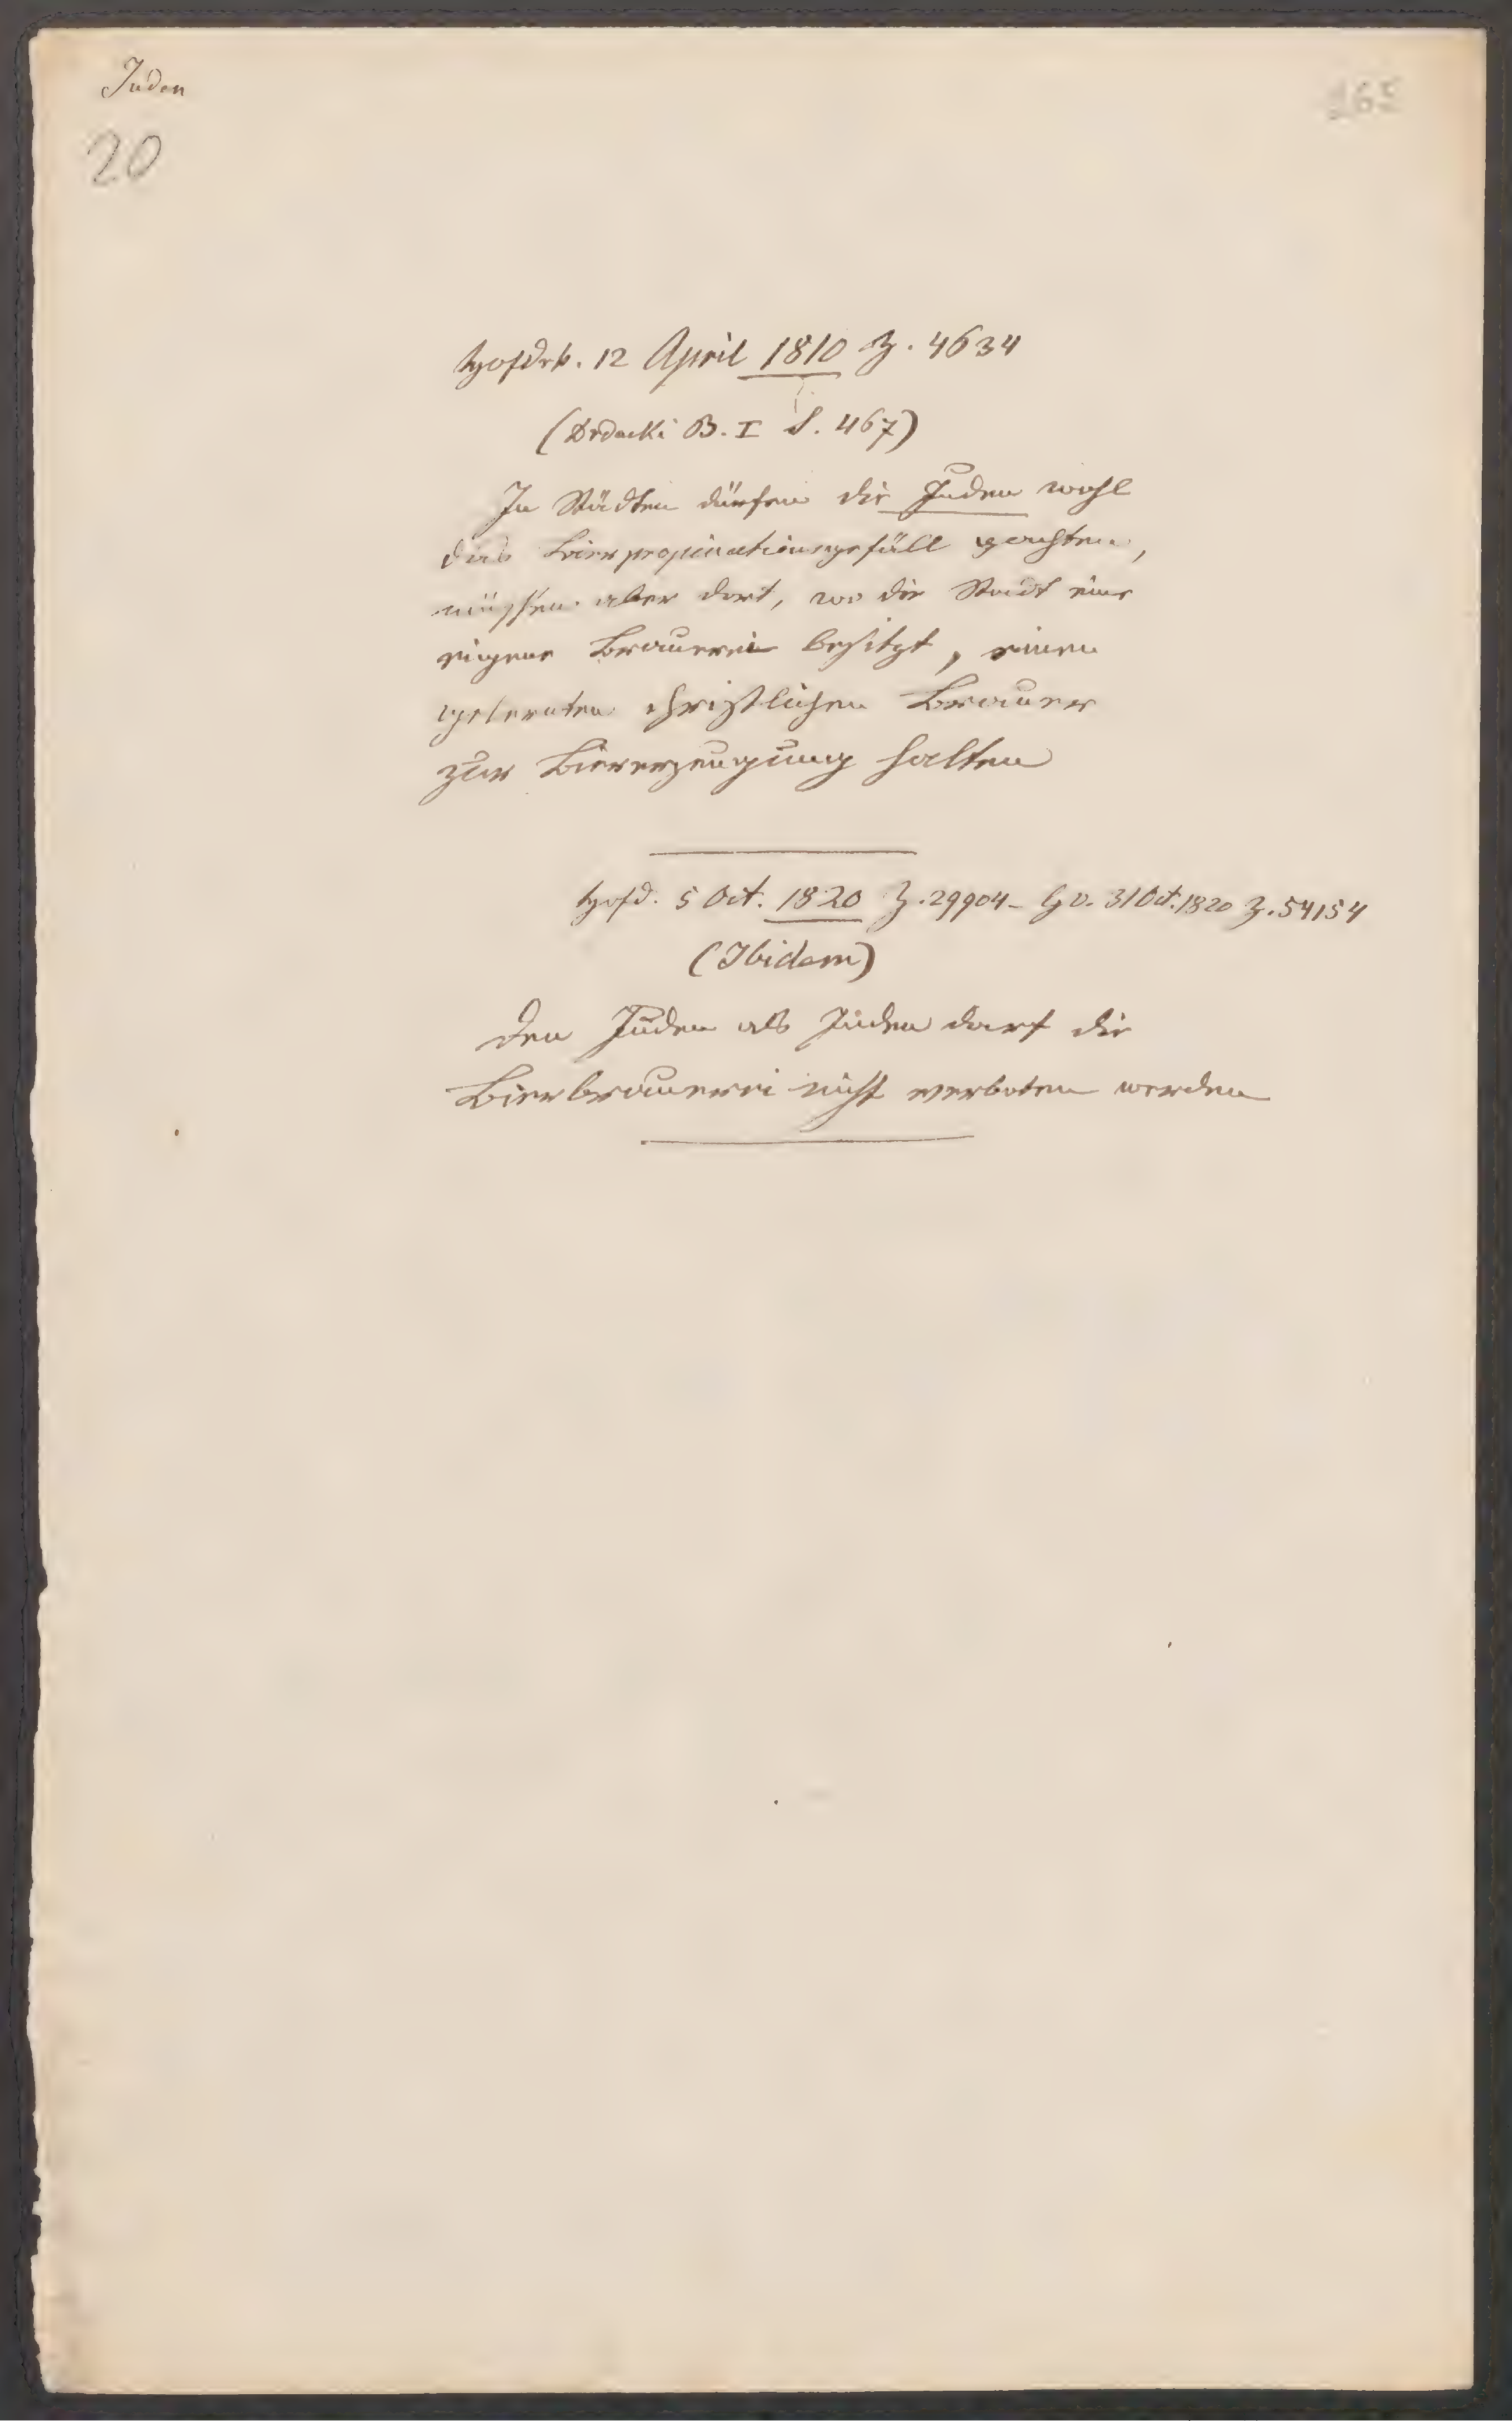 Juden
20
165
Hofdek. 12 April 1810 Z. 4634
(Drdacki B. I S. 467)
In Städten dürfen die Juden wohl
das Bierpropinationsgefäll pachten,
müssen aber dort, wo die Stadt eine
eigene Brauerei besitzt, einen
gelernten christlichen Brauer
zur Biererzeugung halten
Hofd. 5 Oct. 1820 Z. 29904 - Gv. 31 Oct. 1820 Z. 54154
(Ibidem)
Den Juden als Juden darf die
Bierbrauerei nicht verboten werden